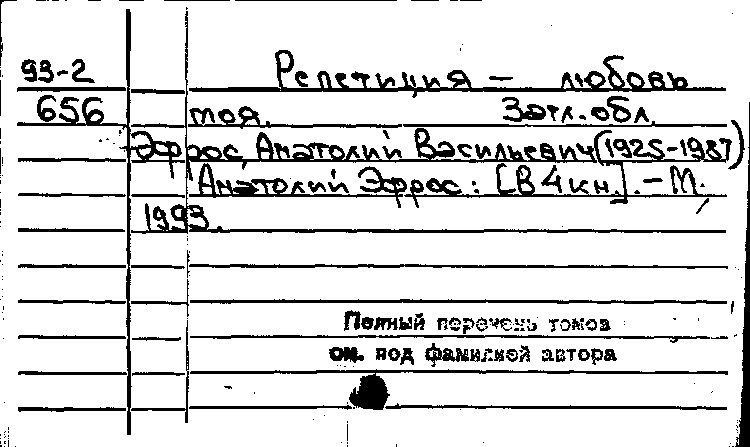 93-2 Репетиция – любовь
656 моя. Загл. обл.
Эфрос, Анатолий Васильевич (1925-1987)
Анатолий Эфрос: [В 4 кн.]. – М.
1993.
Полный перечень томов
см. под фамилией автора